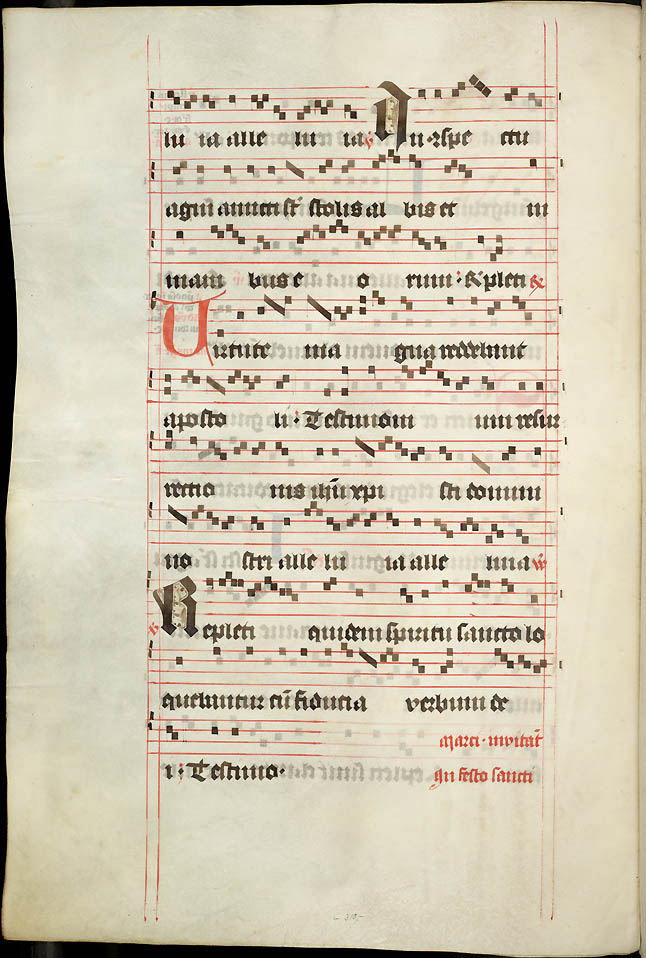 lu ia alle lu ia ℣ In ɔspe ctu
agni amicti st̄ stolis al bis et in
mani bus e o rum · Repleti ℟
Uirtute ma gna reddebant
aposto li · Testimoni um resur
rectio nis ihū xpi sti domini
no stri alle lu ia alle luia ℣
Repleti quidem spiritu sancto lo
quebantur cū fiducia verbum de
i · Testimo ·
Marci · invitat̄
In festo sancti
- 310 -